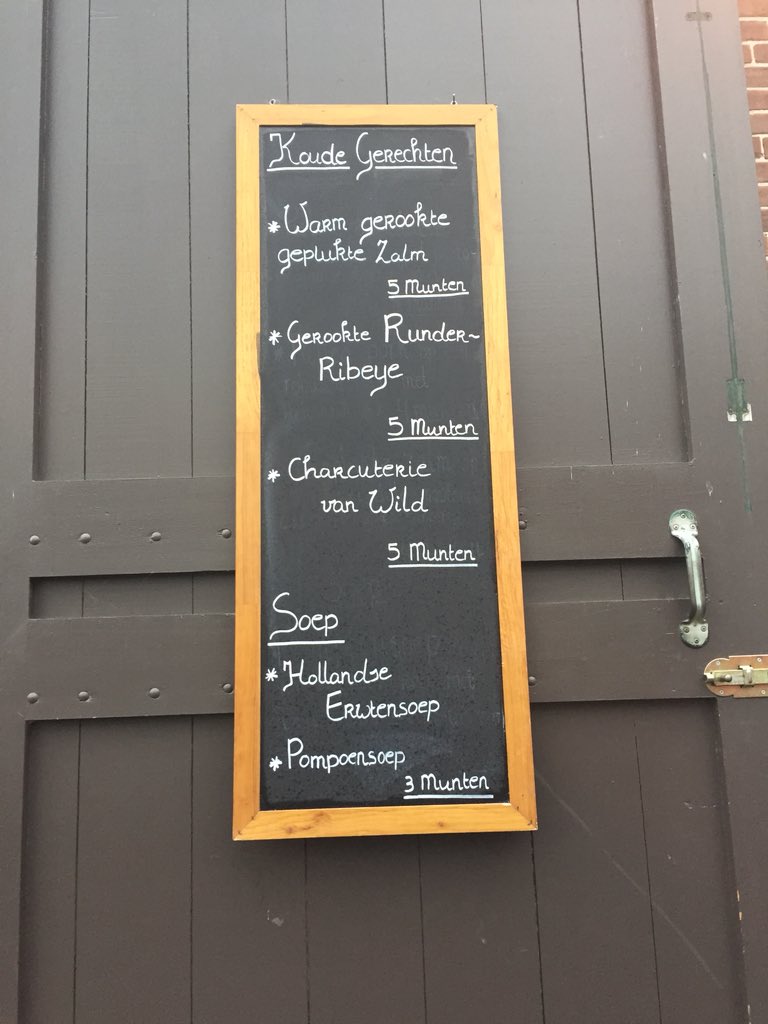 Koude Gerechten
* Warm gerookte
geplukte Zalm
5 Munten
* Gerookte Runder~
Ribeye
5 Munten
* Charcuterie
van Wild
5 Munten
Soep
* Hollandse
Erwtensoep
* Pompoensoep
3 Munten